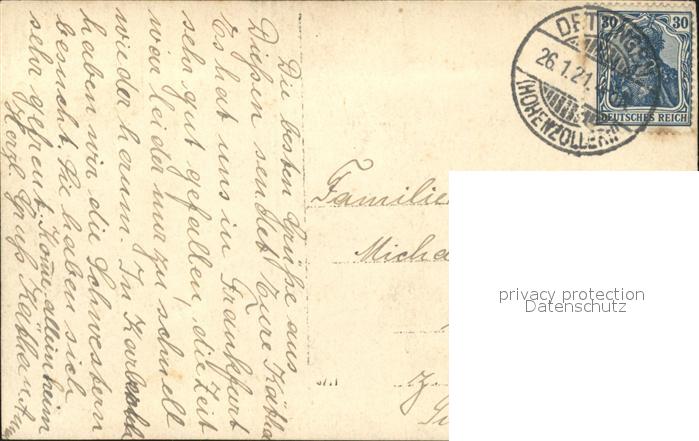 Die besten Grüße aus
sendet Eure Käthe
Es hat uns in Frankfurt
sehr gut gefallen, die Zeit
war leider nur zu schnell
wieder herum. In
haben wir die Schwestern
besucht. Sie haben sich
sehr gefreut. Kom allein heim
Herzl. Gruß Käthe
DEUTSCHES REICH
30 30
26.1.21.
(HOHENZOLLERN)
Familie
Micha
privacy protection
Datenschutz